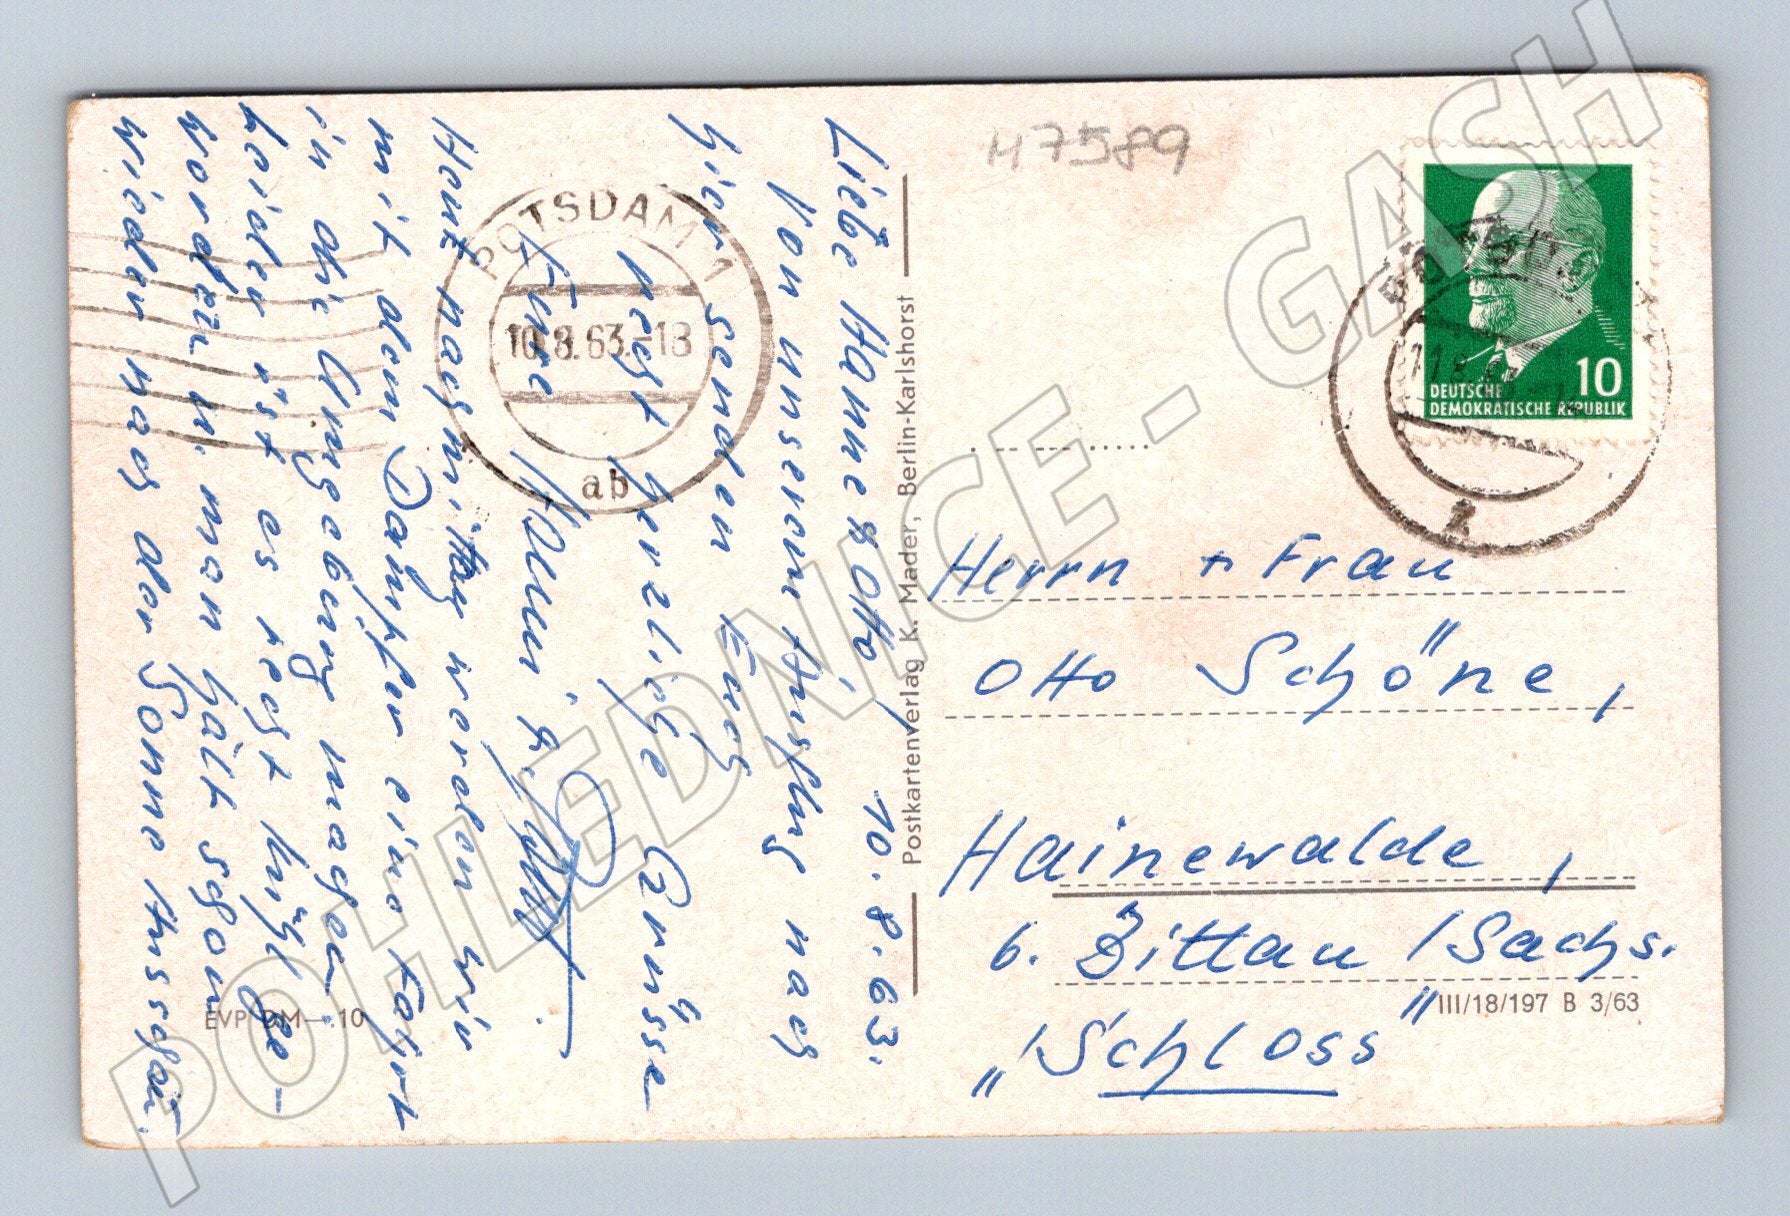 Liebe Hanne & Otto, 10.8.63.
Von unserem Ausflug nach
hier senden Euch
recht herzliche Grüsse
Eure
Heut nachmittag werden wir
mit dem Dampfer eine Fahrt
in die Umgebung machen.
Leider ist es recht kühl ge-
worden u. man hält schon
wieder nach der Sonne Ausschau.
POTSDAM 1
10.8.63.-18
ab
EVP DM -.10
Postkartenverlag K. Mader, Berlin-Karlshorst
47589
10
DEUTSCHE
DEMOKRATISCHE REPUBLIK
Herrn + Frau
Otto Schöne,
Hainewalde,
b. Zittau /Sachs.
„Schloss"
III/18/197 B 3/63
POHLEDNICE - GASH